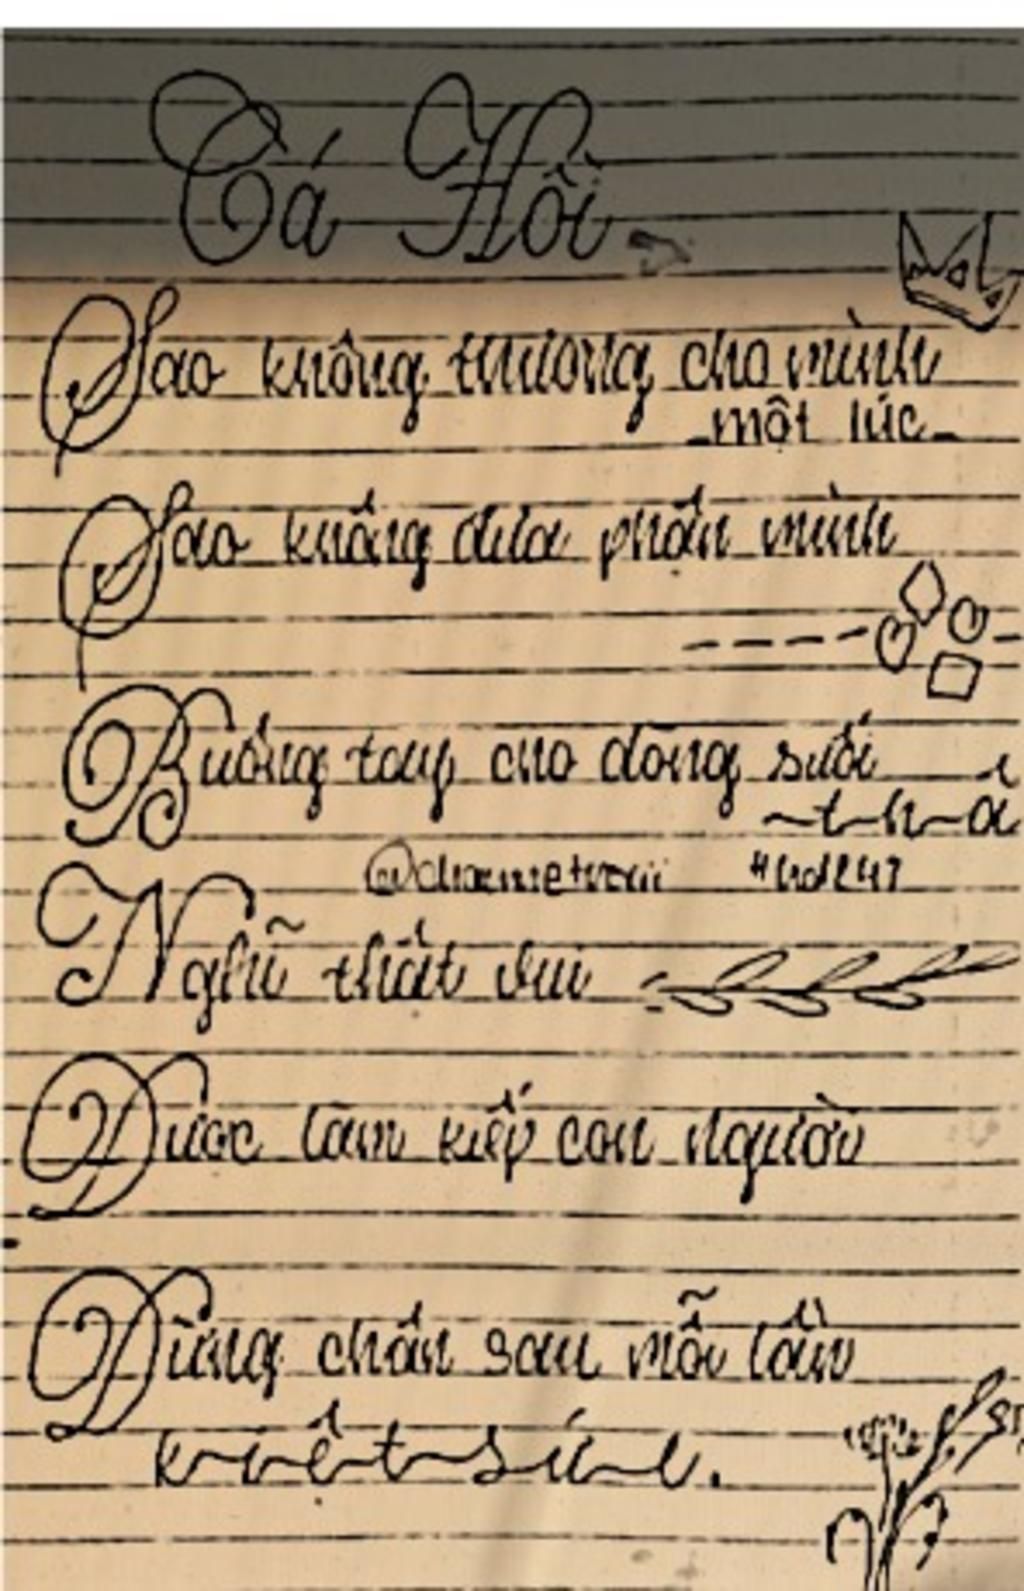 Cá Hồi
Sao không thương cho mình
một lúc
Sao khấng đưa phấn mình
Buông tay cho dòng suối
t-h-a
Nghĩ thất vui
Được làm kiếp con người
Dừng chấn sau mỗi lần
kiệt sức.